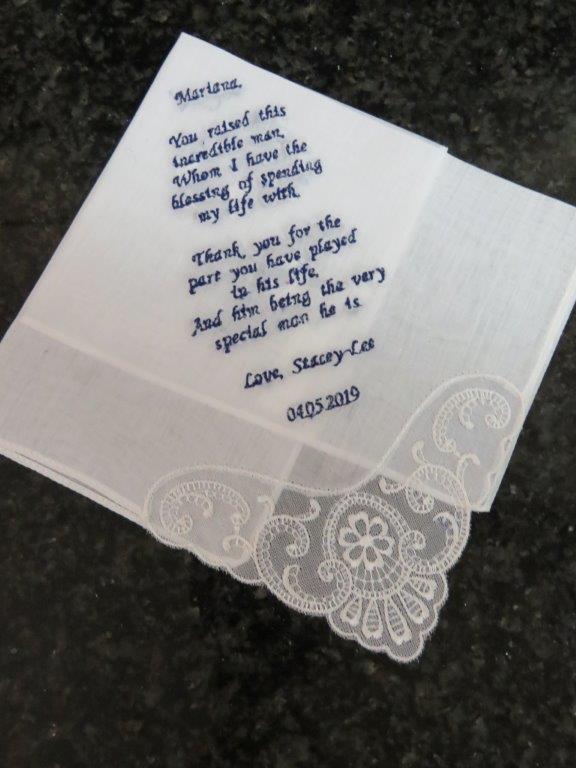 Mariana,
You raised this
incredible man,
Whom I have the
blessing of spending
my life with.
Thank you for the
part you have played
in his life,
And him being the very
special man he is
Love, Stacey-Lee
04.05.2019